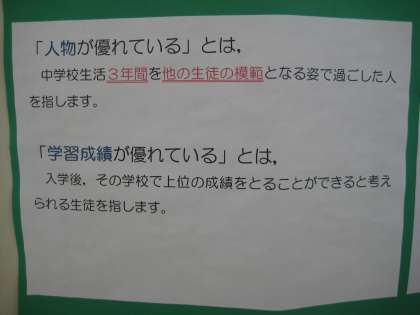 「人物が優れている」とは，
中学校生活３年間を他の生徒の模範となる姿で過ごした人
を指します。
「学習成績が優れている」とは，
入学後，その学校で上位の成績をとることができると考え
られる生徒を指します。